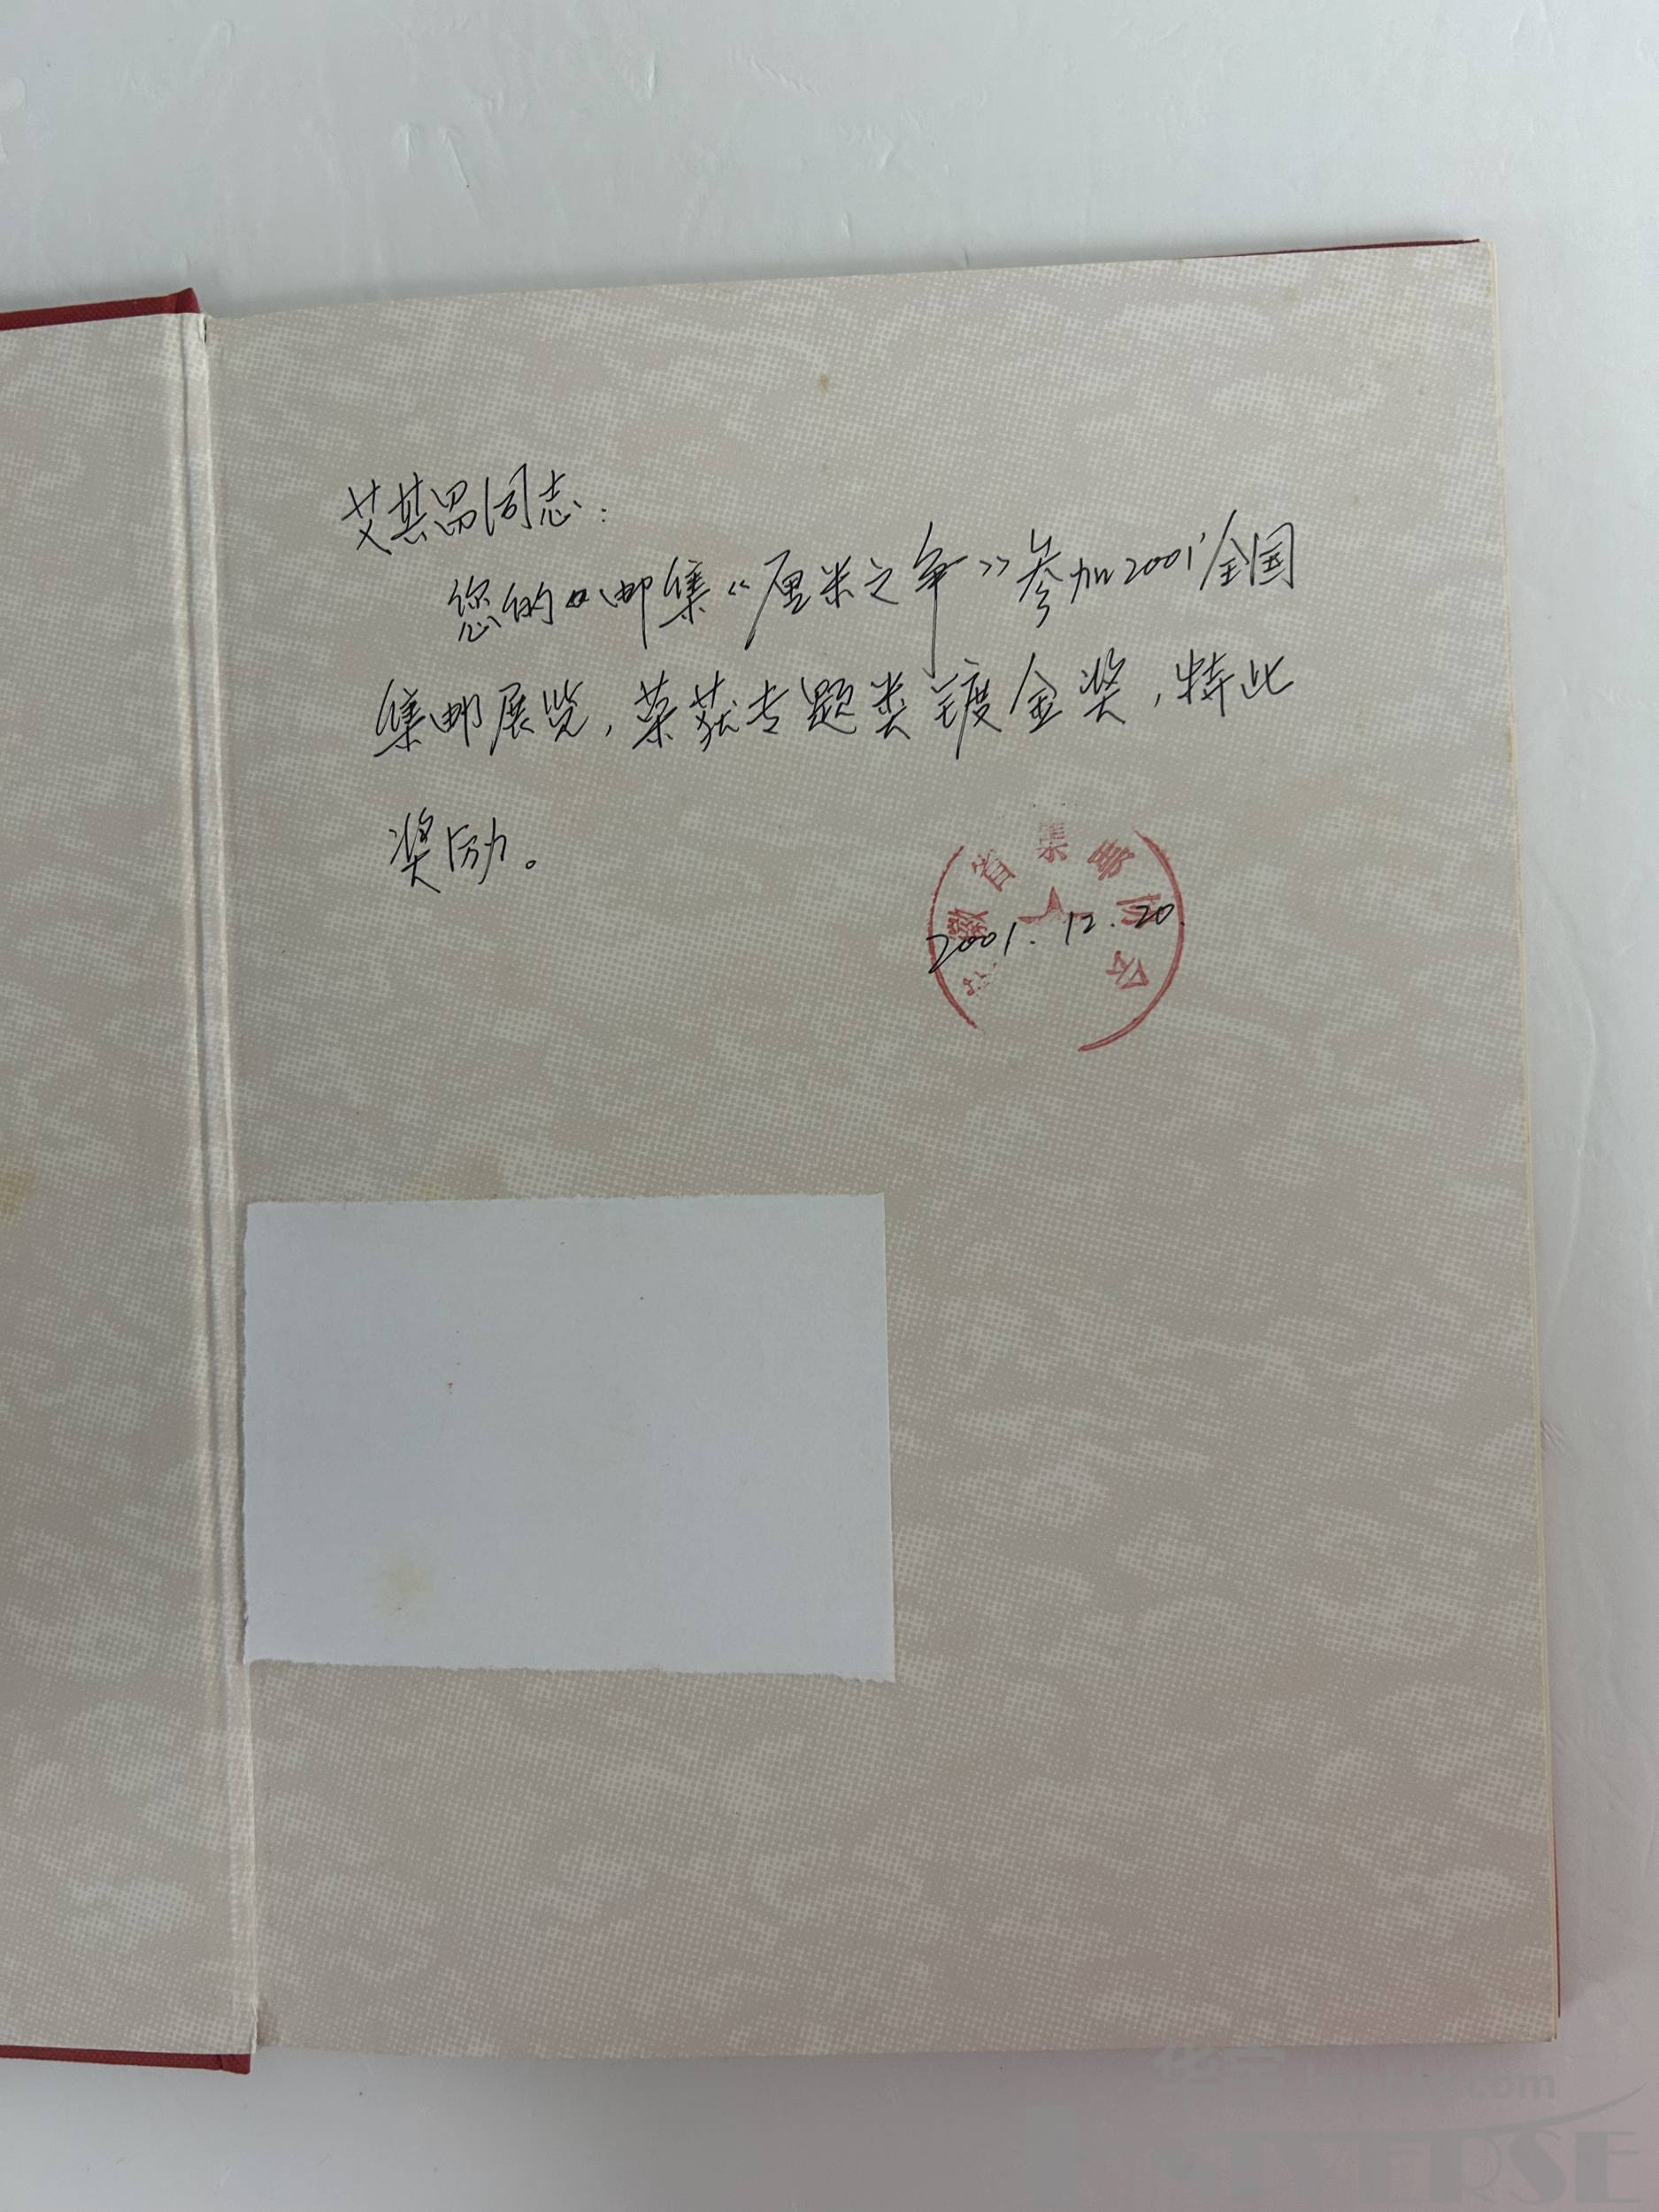 艾其昌同志：
您的邮集《厘米之争》参加2001'全国
集邮展览，荣获专题类镀金奖，特此
奖励。
徽省集票公
2001.12.20.
.com